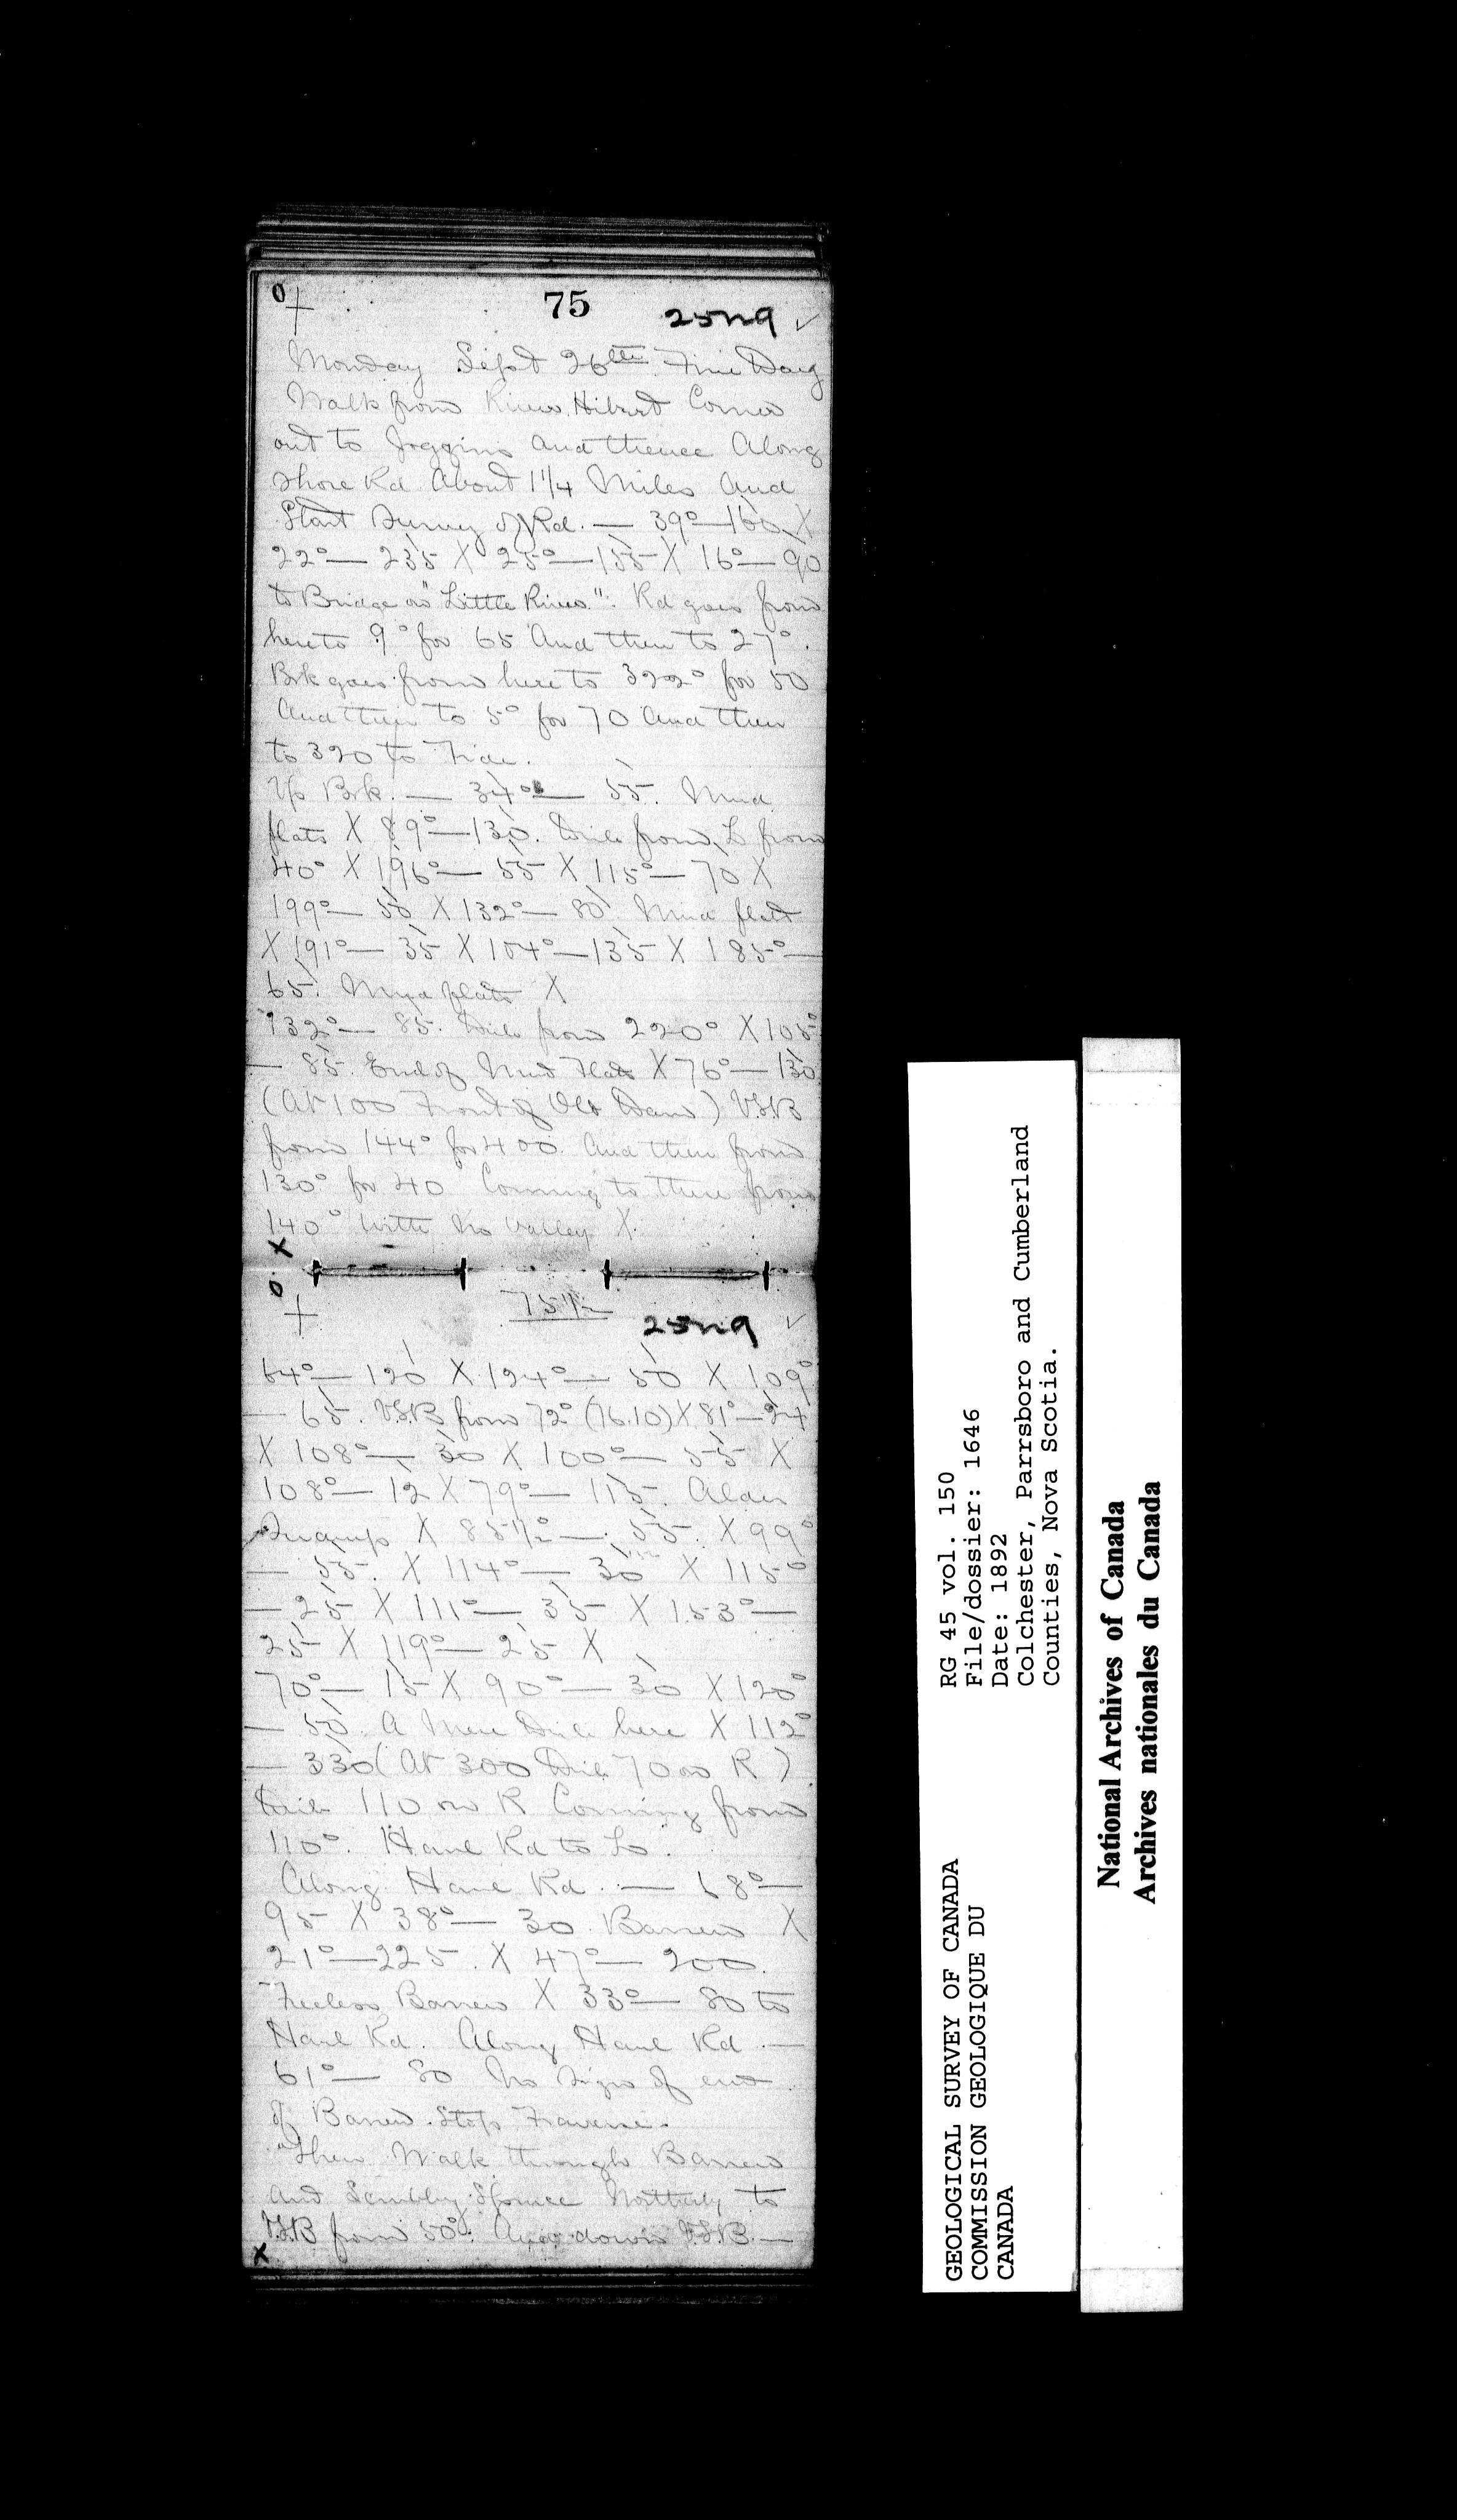 75
25ng
Monday Sept 26th Fine Day
Walk from River Hibert Corner
out to Joggins And thence Along
Shore Rd About 1 1/4 Miles And
Start Survey of Rd. — 39° — 160 X
22° — 235 X 25° — 155 X 16° — 90
to Bridge on "Little River". Rd goes from
here to 9° for 65 And then to 27°.
Brk goes from here to 322° for 50
And then to 5° for 70 And then
to 320 to Tide.
Up Brk. — 34° — 55. Mud
flats X 89° — 130. from L from
40° X 196° — 55 X 115° — 70 X
199° — 50 X 132° — 80. Mud flat
X 191° — 35 X 104° — 135 X 185° —
65. Mud flats X
132° — 85. from 220° X 105°
— 85. End of Mud Flats X 76° — 130
(At 100 Front of Old Dam) V.S.B
from 144° for 400. And then from
130° for 40 Coming to there from
140° with no valley X
75 1/2
25ng
64° — 120 X 124° — 50 X 109°
— 65. V.S.B from 72° (76.10) X 81° — 24
X 108° — 30 X 100° — 55 X
108° — 12 X 79° — 115. Alder
Swamp X 85 1/2° — 55. X 99°
— 55. X 114° — 30 X 115°
— 25 X 111° — 35 X 153° —
25 X 119° — 25 X
70° — 15 X 90° — 30 X 120°
— 50. A Mere here X 112°
— 330 (At 300 70 on R)
110 on R Coming from
110°. Haul Rd to L.
Along Haul Rd. — 68° —
95 X 38° — 30. Barren X
21° — 225. X 47° — 200.
Treeless Barren X 33° — 80 to
Haul Rd. Along Haul Rd —
61° — 80 No sign of end
of Barren. Stop Traverse.
Then Walk through Barren
And Scrubby Spruce Northerly to
V.S.B from 50°. And down V.S.B. —
RG 45 vol. 150
File/dossier: 1646
Date: 1892
Colchester, Parrsboro and Cumberland
Counties, Nova Scotia.
GEOLOGICAL SURVEY OF CANADA
COMMISSION GEOLOGIQUE DU
CANADA
National Archives of Canada
Archives nationales du Canada